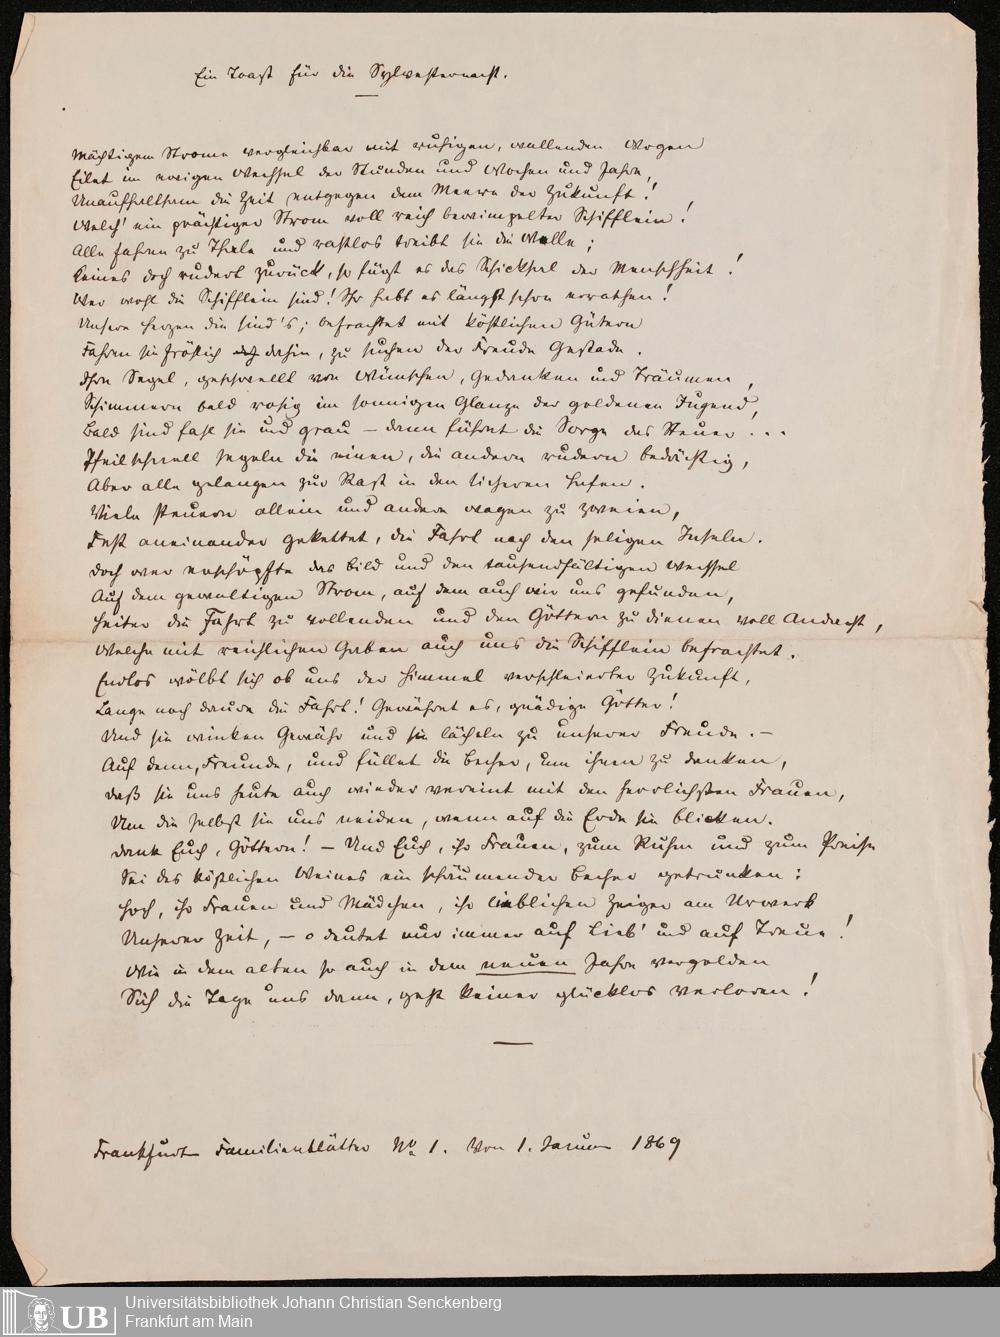 Ein Toast für die Sylvesternacht.
Mächtigem Strome vergleichbar mit ruhigen, wallenden Wogen
Eilet im ewigen Wechsel der Stunden und Wochen und Jahre,
Unaufhaltsam die Zeit entgegen dem Meere der Zukunft!
Welch' ein prächtiger Strom voll reich bewimpelter Schifflein!
Alle fahren zu Thale und rastlos treibt sie die Welle;
Keines doch rudert zurück, so fügt es das Schicksal der Menschheit!
Wer wohl die Schifflein sind! Ihr habt es längst schon errathen!
Unsere Herzen die sind's; befrachtet mit köstlichen Gütern
Fahren sie fröhlich dahin, zu suchen der Freude Gestade.
Ihre Segel, geschwellt von Wünschen, Gedanken und Träumen,
Schimmern bald rosig im sonnigen Glanze der goldenen Jugend,
Bald sind fahl sie und grau – dann führet die Sorge das Steuer...
Pfeilschnell segeln die einen, die andern rudern bedächtig,
Aber alle gelangen zur Rast in den sicheren Hafen.
Viele steuern allein und andere wagen zu zweien,
Fest aneinander gekettet, die Fahrt nach den seligen Inseln.
Doch wer erschöpfte das Bild und den tausendfältigen Wechsel
Auf dem gewaltigen Strom, auf dem auch wir uns gefunden,
Heiter die Fahrt zu vollenden und den Göttern zu dienen voll Andacht,
Welche mit reichlichen Gaben auch uns die Schifflein befrachtet.
Endlos wölbt sich ob uns der Himmel verschleierter Zukunft,
Lange noch daure die Fahrt! Gewähret es, gnädige Götter!
Und sie winken Gewähr und sie lächeln zu unserer Freude. –
Auf denn, Freunde, und füllet die Becher, um ihnen zu danken,
Daß sie uns heute auch wieder vereint mit den herrlichsten Frauen,
Um die selbst sie uns neiden, wenn auf die Erde sie blicken.
Dank Euch, Göttern! – Und Euch, ihr Frauen, zum Ruhm und zum Preise
Sei des köstlichen Weines ein schäumender Becher getrunken:
Hoch, ihr Frauen und Mädchen, ihr lieblichen Zeiger am Uhrwerk
Unserer Zeit, – o deutet nur immer auf Lieb' und auf Treue!
Wie in dem alten so auch in dem neuen Jahre vergolden
Sich die Tage uns dann, geht keiner glücklos verloren!
Frankfurter Familienblätter No 1. Von 1. Januar 1869
UB
Universitätsbibliothek Johann Christian Senckenberg
Frankfurt am Main